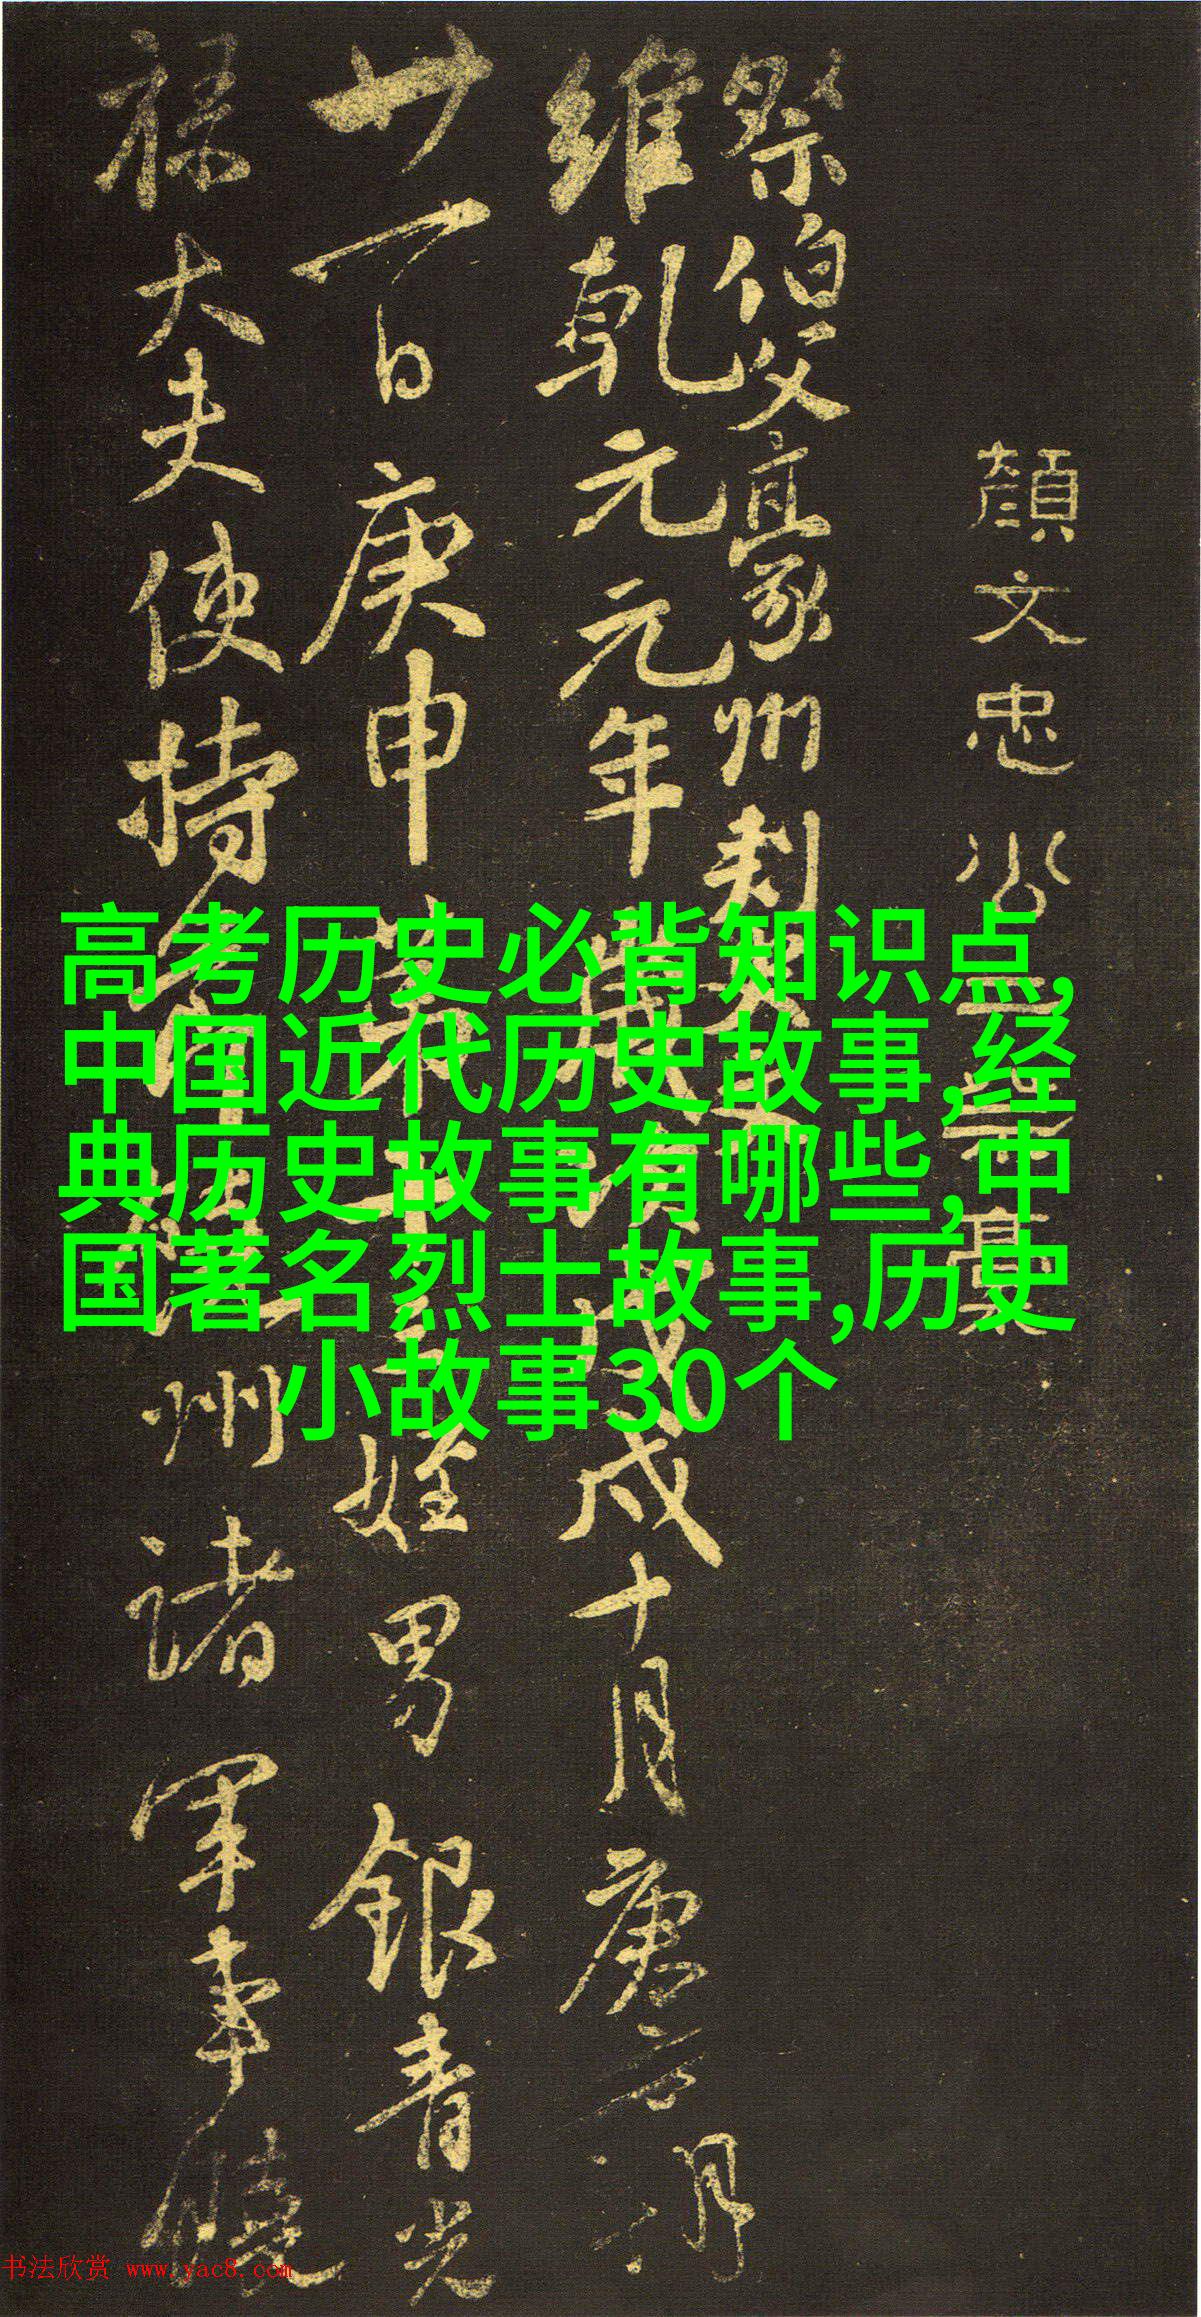 顏文忠公
祭伯父豪州刺
維乾元元年歲次戊戌十月庚寅朔
廿一日庚申第十三姪男銀青光
祿大夫使持節饒州諸軍事饒
高考历史必背知识点,
中国近代历史故事,经
典历史故事有哪些,中
国著名烈士故事,历史
小故事30个
书法欣赏 www.yac8.com